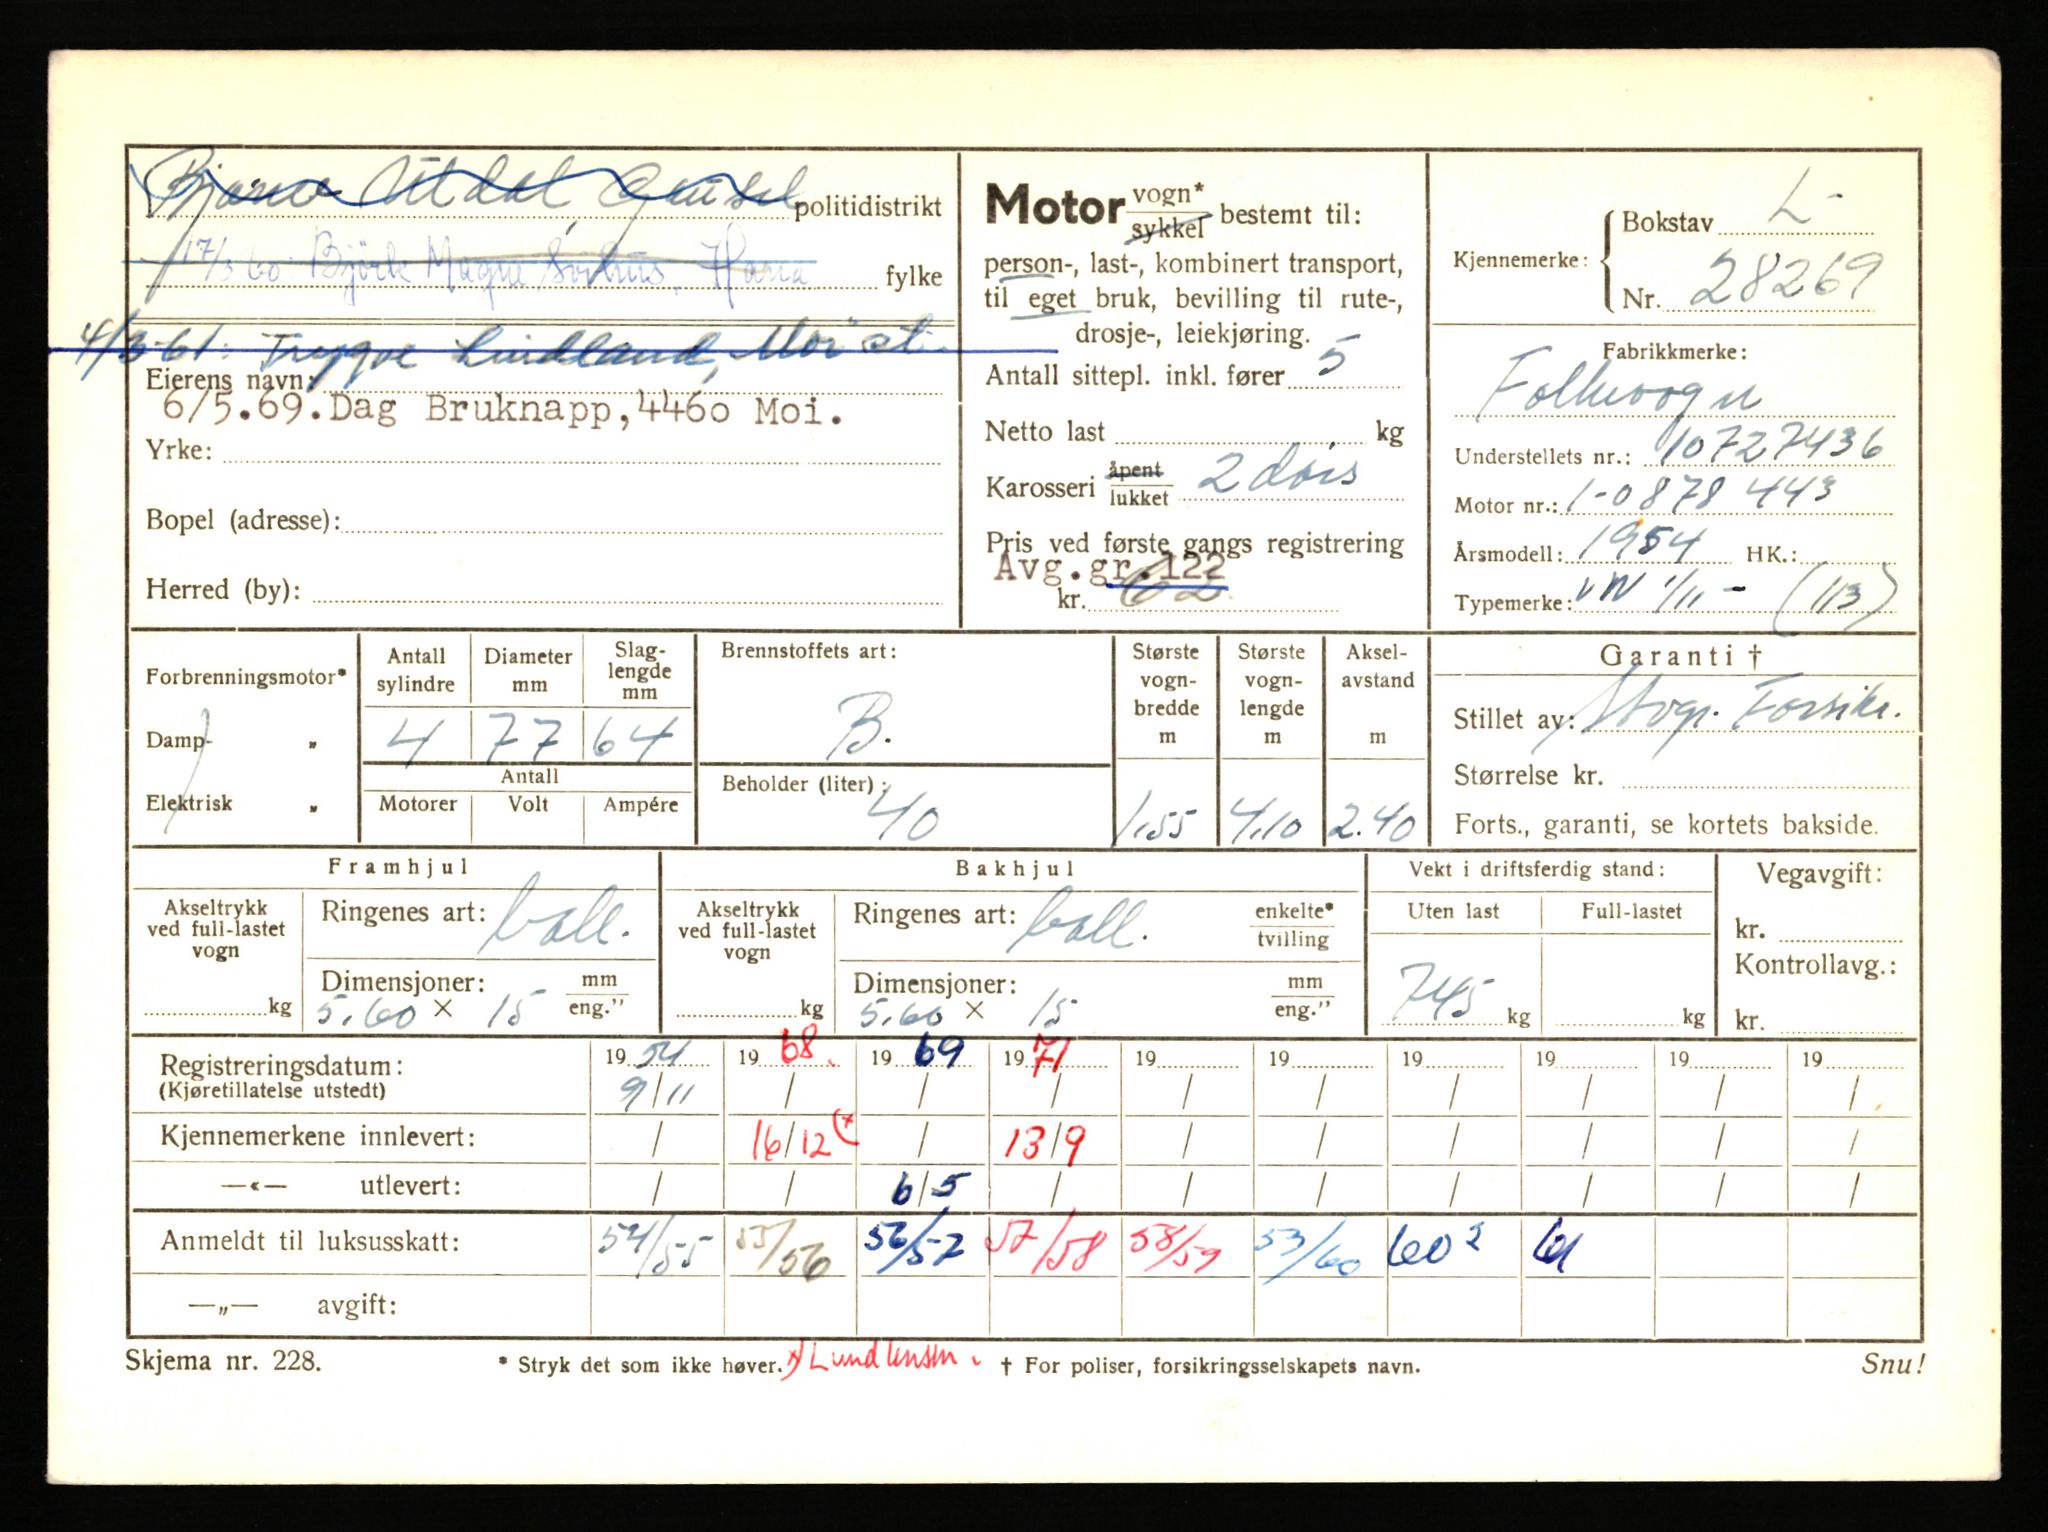 Bjarne Utdal politidistrikt
17/3 60. Björk Magne Sørhus, Hana fylke
4/3-61. Trygve Lindland, Moi st.
Eierens navn:
6/5.69.Dag Bruknapp, 4460 Moi.
Yrke:
Bopel (adresse):
Herred (by):
Motor vogn* / sykkel bestemt til:
person-, last-, kombinert transport,
til eget bruk, bevilling til rute-,
drosje-, leiekjøring.
Antall sittepl. inkl. fører 5
Netto last kg
Karosseri åpent / lukket 2 dørs
Pris ved første gangs registrering
Avg.gr.122
kr. 62
Kjennemerke: Bokstav L-
Nr. 28269
Fabrikkmerke:
Folkevogn
Understellets nr.: 10727436
Motor nr.: 1-0878 443
Årsmodell: 1954 HK.:
Typemerke: VW 1/11 - (113)
Forbrenningsmotor*
Damp- „
Elektrisk „
Antall sylindre Diameter mm Slag-lengde mm
4 77 64
Antall
Motorer Volt Ampére
Brennstoffets art:
B.
Beholder (liter):
40
Største vogn-bredde m Største vogn-lengde m Aksel-avstand m
1.55 4.10 2.40
Garanti †
Stillet av: Forsikr.
Størrelse kr.
Forts., garanti, se kortets bakside.
Framhjul
Akseltrykk ved full-lastet vogn
kg
Ringenes art: ball.
Dimensjoner: mm / eng."
5.60 × 15
Bakhjul
Akseltrykk ved full-lastet vogn
kg
Ringenes art: ball. enkelte* / tvilling
Dimensjoner: mm / eng."
5.60 × 15
Vekt i driftsferdig stand:
Uten last Full-lastet
745 kg kg
Vegavgift:
kr.
Kontrollavg.:
kr.
Registreringsdatum: 1954 1968. 1969 1971 19 19 19 19 19 19
(Kjøretillatelse utstedt) 9/11 / / / / / / / / /
Kjennemerkene innlevert: / 16/12 (x / 13/9 / / / / / /
—«— utlevert: / / 6/5 / / / / / / /
Anmeldt til luksusskatt: 54/55 55/56 56/57 57/58 58/59 53/60 60² 61
—„— avgift:
Skjema nr. 228. * Stryk det som ikke høver. x) † For poliser, forsikringsselskapets navn. Snu!